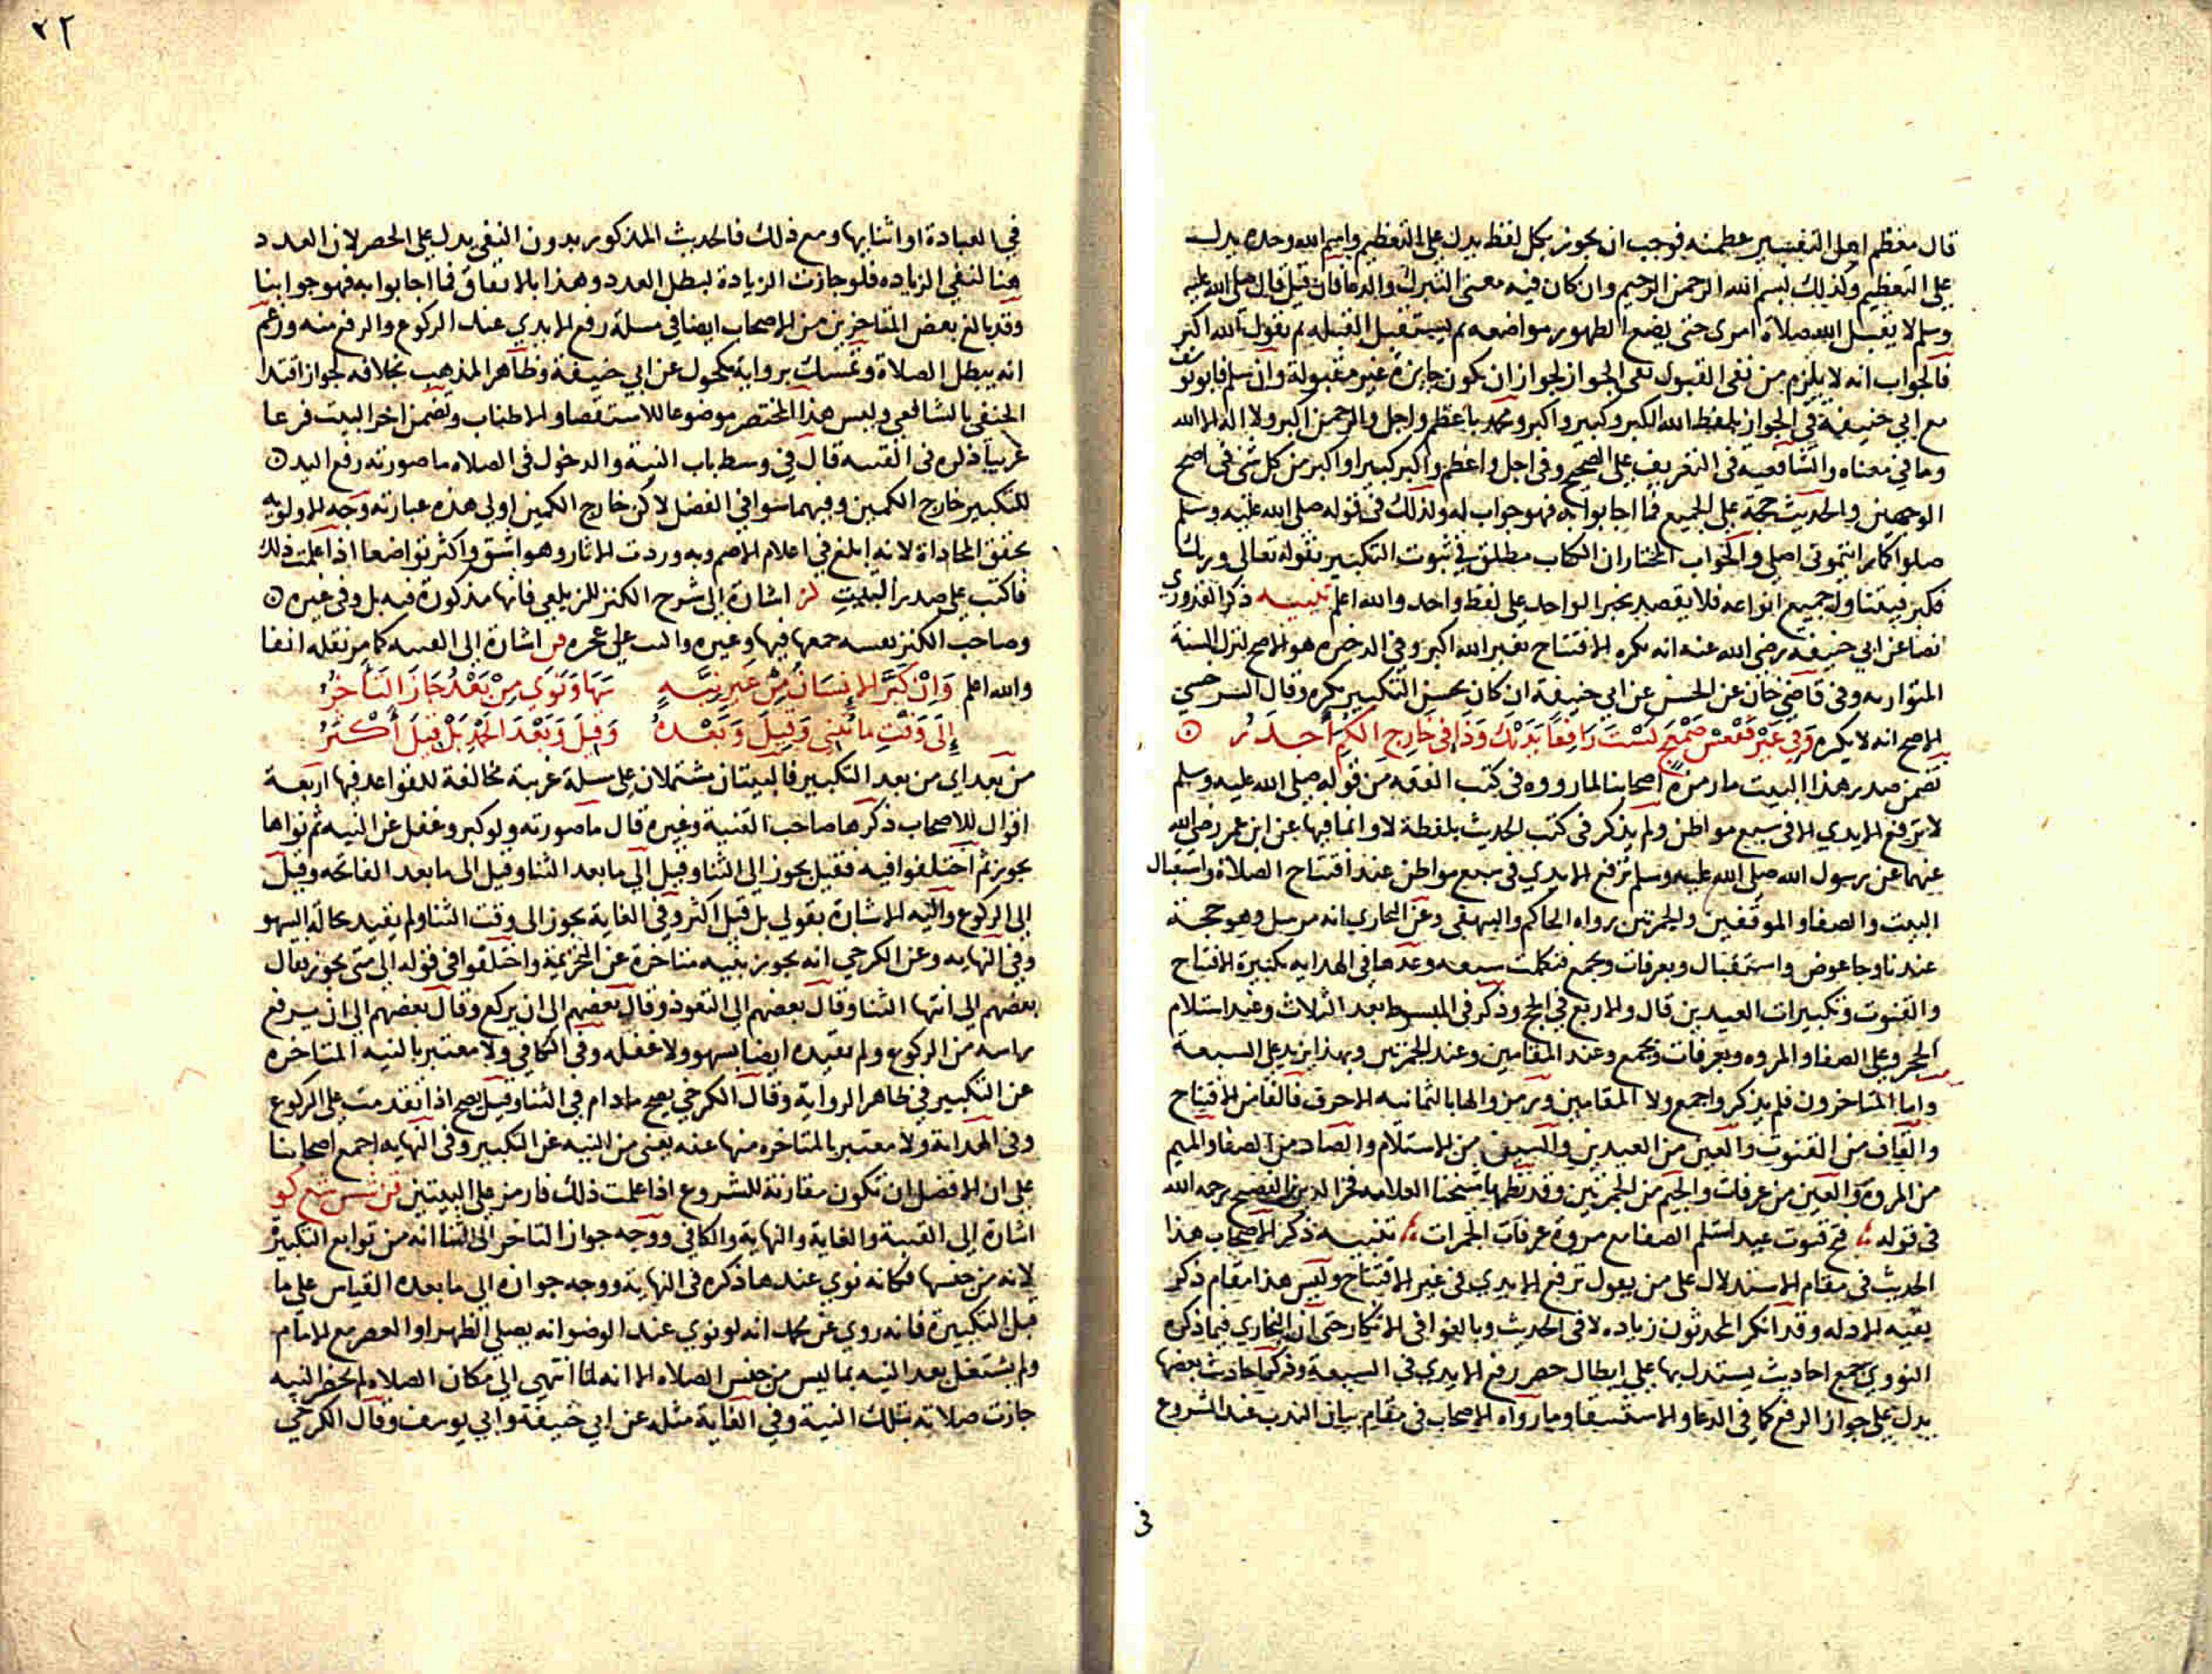 قال معظم اهل التفسير عظمنه فوجب ان يجوز بكل لفظ يدل على التعظيم واسم الله وحده يدل
على التعظيم وكذلك بسم الله الرحمن الرحيم وان كان فيه معنى التبرك والدعا فان قيل قال صلى الله عليه
وسلم لا يقبل الله صلاة امرى حتى يضع الطهور مواضعه ثم يستقبل القبله ثم يقول الله اكبر
فالجواب انه لا يلزم من نفى القبول نفى الجواز لجواز ان يكون جايزة غير مقبولة وان سلم فابو يوسف
مع ابي حنيفة في الجواز بلفظ الله الكبير وكبير واكبر ومحمد باعظم واجل والرحمن اكبر ولا اله الا الله
وما في معناه والشافعية فى التعريف على الصحيح وفى اجل واعظم واكبر كبيرا واكبر من كل شى فى اصح
الوجهين والحديث حجة على الجميع فما اجابوا به فهو جواب له وكذلك فى قوله صلى الله عليه وسلم
صلوا كما رايتمونى اصلى والجواب المختار ان الكتاب مطلق في ثبوت التكبير بقوله تعالى وربك
فكبر فيتناول جميع انواعه فلا يقصر بخبر الواحد على لفظ واحد والله اعلم تنبيه ذكر القدوري
نصا عن ابي حنيفه رضى الله عنه انه يكره الافتتاح بغير الله اكبر وفى الذخيره هو الاصح لترك السنة
المتوارثه وفى قاضى خان عن الحسن عن ابي حنيفة ان كان يحسن التكبير يكره وقال السرخسي
الاصح انه لا يكره وَفِي غَيْرِ فَقْعَسْ صَمْعَجٍ لَسْتَ رَافِعًا يَدَيْكَ وَذَا فى خَارِجِ الكُمِّ أَجْدَرُ
تضمن صدر هذا البيت ما رمزه اصحابنا لما رووه فى كتب الفقه من قوله صلى الله عليه وسلم
لا ترفع الايدي الا فى سبع مواطن ولم يذكر فى كتب الحديث بلفظة لا وانما فيها عن ابن عمر رضى الله
عنهما عن رسول الله صلى الله عليه وسلم ترفع الايدي فى سبع مواطن عند افتتاح الصلاة واستقبال
البيت والصفا والموقفين والجمرتين رواه الحاكم والبيهقى وعن البخاري انه مرسل وهو حجة
عندنا وجا عوض واستقبال وبعرفات وبجمع فتكملت سبعه وعدها فى الهدايه تكبيرة الافتتاح
والقنوت وتكبيرات العيدين قال والاربع في الحج وذكر فى المبسوط بعد الثلاث وعند استلام
الحجر وعلى الصفا والمروه وبعرفات وبجمع وعند المقامين وعند الجمرتين وبهذا يزيد على السبعة
واما المتاخرون فلم يذكروا جمع ولا المقامين ورمزوا لها بالثمانيه الاحرف فالفا من الافتتاح
والقاف من القنوت والعين من العيدين والسين من الاستلام والصاد من الصفا والميم
من المروة والعين من عرفات والجيم من الجمرتين وقد نظمها شيخنا العلامه فخر الدين بن الفصيح رحمه الله
فى قوله فتح قنوت عيد استلم الصفا مع مروة عرفات الجمرات تنبيه ذكر الاصحاب هذا
الحديث فى مقام الاستدلال على من يقول ترفع الايدي فى غير الافتتاح وليس هذا مقام ذكر
بقيه الادله وقد انكر المحدثون زياده لا فى الحديث وبالغوا فى الانكار حتى ان البخاري فيما ذكره
النووي جمع احاديث يستدل بها على ابطال حصر رفع الايدي فى السبعة وذكر احاديث بعضها
يدل على جواز الرفع كما في الدعا والاستسقا وما رواه الاصحاب فى مقام بيان الندب عند الشروع
فى
٢٢
في العبادة او اثنايها ومع ذلك فالحديث المذكور بدون النفى يدل على الحصر لان العدد
هنا لنفى الزياده فلو جازت الزيادة لبطل العدد وهذا بالاتفاق فما اجابوا به فهو جوابنا
وقد بالغ بعض المتاخرين من الاصحاب ايضا في مسلة رفع الايدي عند الركوع والرفع منه وزعم
انه يبطل الصلاة وتمسك برواية مكحول عن ابي حنيفة وظاهر المذهب بخلافه لجواز اقتدا
الحنفي بالشافعي وليس هذا المختصر موضوعا للاستقصا والاطناب وتضمن اخر البيت فرعا
غريبا ذكره فى القنيه قال في وسط باب النية والدخول فى الصلاه ما صورته رفع اليد
للتكبير خارج الكمين وفيهما سوا في الفضل لاكن خارج الكمين اولى هذه عبارته وجه الاولويه
تحقق المحاذاة لانه ابلغ في اعلام الاصم وبه وردت الاثار وهو اشق واكثر تواضعا اذا علمت ذلك
فاكتب على صدر البيت لز اشارة الى شرح الكنز للزيلعي فانها مذكورة فيه بل وفى غيره
وصاحب الكنز نفسه جمعها فيها وغيره واكتب على عجزه قن اشارة الى القنيه كما مر نقله انفا
والله اعلم وَاِنْ كَبَّرَ الانسَانُ مِنْ غَيرِ نِيَّةٍ بَهَا وَنَوَى مِنْ بَعْدُ جَازَ التَّأخرُ
إِلَى وَقْتِ ما يُثنِى وَقِيلَ وَبَعْدهُ وَقِيلَ وَبَعْدَ الحَمْدِ بَلْ قِيلَ أَكْثَرُ
من بعد اي من بعد التكبير فالبيتان مشتملان على مسلة غريبة مخالفة للقواعد فيها اربعة
اقوال للاصحاب ذكرها صاحب القنية وغيره قال ما صورته ولو كبر وغفل عن النيه ثم نواها
يجوز ثم اختلفوا فيه فقيل يجوز الى الثنا وقيل الى ما بعد الثنا وقيل الى ما بعد الفاتحه وقيل
الى الركوع واليه الاشارة بقولي بل قيل اكثر وفي الغاية يجوز الى وقت الثنا ولم يقيد بحالة السهو
وفي النهايه وعن الكرخي انه يجوز بنيه متاخرة عن التحريمة واختلفوا فى قوله الى متى يجوز فقال
بعضهم الى انتها الثنا وقال بعضهم الى التعوذ وقال بعضهم الى ان يركع وقال بعضهم الى ان يرفع
راسه من الركوع ولم يقيده ايضا بسهو ولا غفله وفى الكافي ولا معتبر بالنيه المتاخره
عن التكبير في ظاهر الرواية وقال الكرخي يصح مادام في الثنا وقيل يصح اذا تقدمت على الركوع
وفى الهداية ولا معتبر بالمتاخره منها عنه يعنى من النيه عن التكبير وفى النهايه اجمع اصحابنا
على ان الافضل ان تكون مقارنة للشروع اذا علمت ذلك فارمز على البيتين
اشارة الى القنية والغاية والنهاية والكافى ووجه جواز التاخر الى الثنا انه من توابع التكبير
لانه من جنسها فكانه نوي عندها ذكره فى النهاية ووجه جوازه الى ما بعده القياس على ما
قبل التكبيرة فانه روي عن محمد انه لو نوي عند الوضو انه يصلي الظهر او العصر مع الامام
ولم يشتغل بعد النيه بما ليس من جنس الصلاه الا انه لما انتهى الى مكان الصلاه لم تحضر النيه
جازت صلاته بتلك النية وفي الغاية مثله عن ابي حنيفة وابي يوسف وقال الكرخي